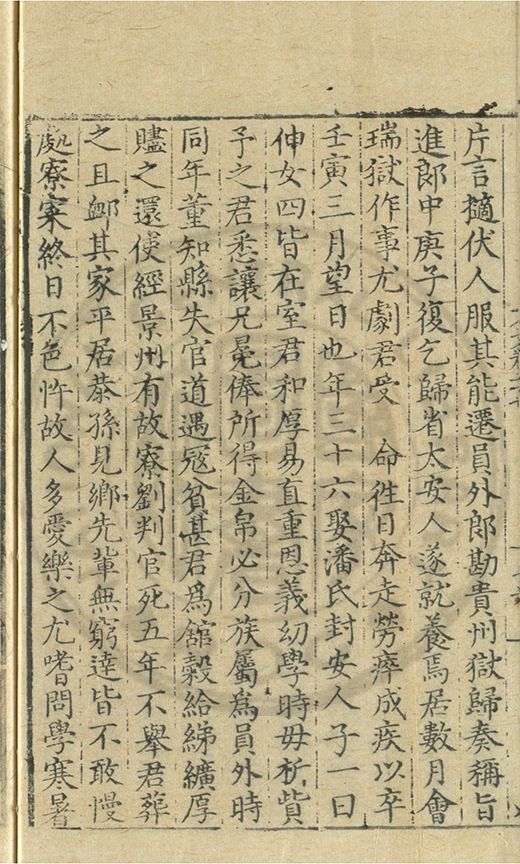 片言擿伏人服其能遷員外郎勘貴州獄歸奏稱旨
進郎中庚子復乞歸省太安人遂就養焉居數月會
瑞獄作事尤劇君受　命徃日奔走勞瘁成疾以卒
壬寅三月望日也年三十六娶潘氏封安人子一曰
伸女四皆在室君和厚易直重恩義幼學時毋析貲
子之君悉讓兄㫤俸所得金帛必分族屬爲員外時
同年董知縣失官道遇冦貧甚君爲舘穀給綈纊厚
贐之還使經景州有故寮劉判官死五年不舉君葬
之且䘏其家平居恭孫見鄉先軰無窮達皆不敢慢
處寮寀終日不色忤故人多愛樂之尤嗜問學寒暑